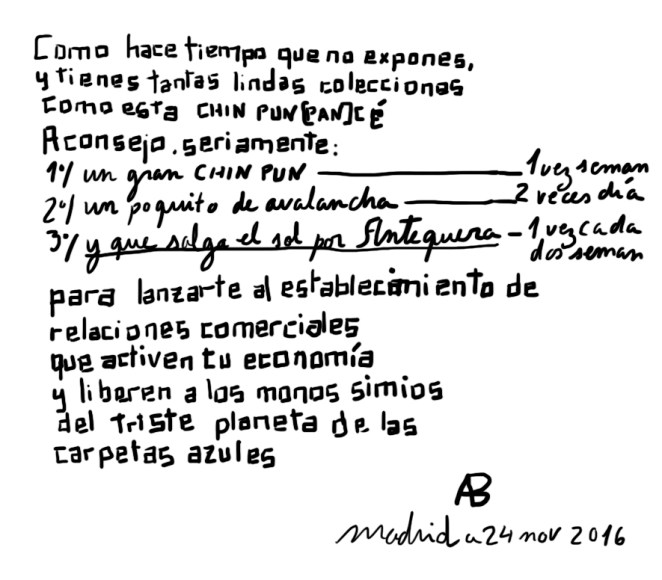 Como hace tiempo que no expones,
y tienes tantas lindas colecciones
como esta CHIN PUN[PAN]CÉ
Aconsejo.seriamente:
1º/ un gran CHIN PUN — 1 vez seman
2º/ un poquito de avalancha — 2 veces día
3º/ y que salga el sol por Antequera – 1 vez cada
dos seman
para lanzarte al establecimiento de
relaciones comerciales
que activen tu economía
y liberen a los monos simios
del triste planeta de las
carpetas azules
AB
Madrid a 24 nov 2016